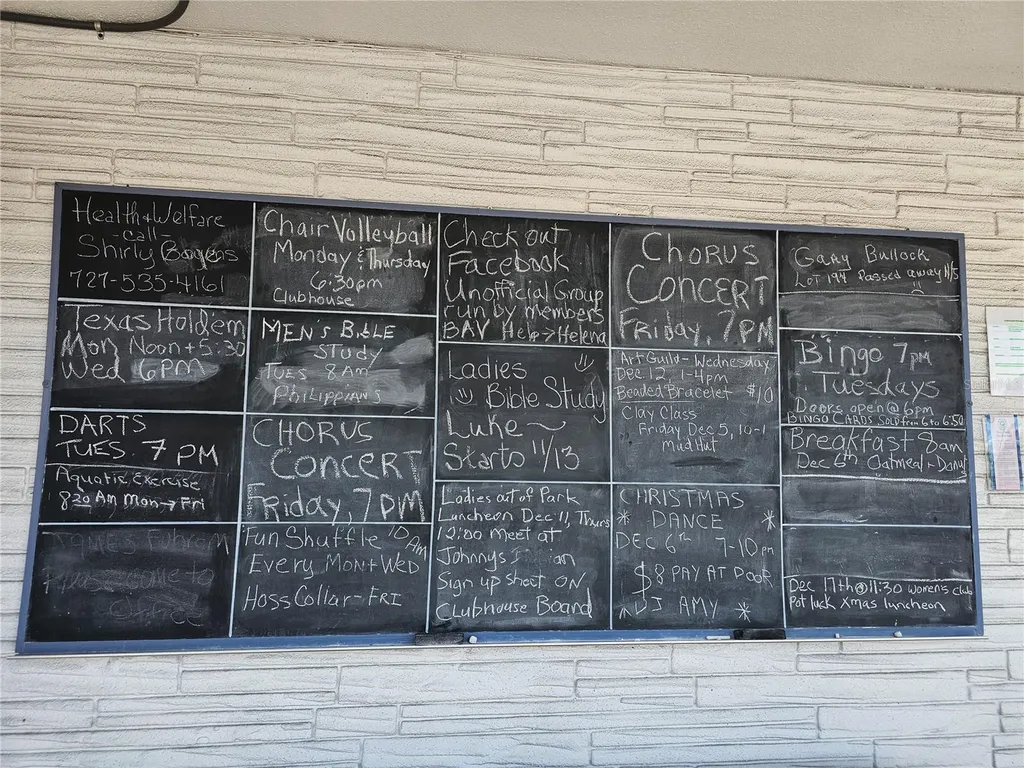 Health & Welfare
- call -
Shirly Bogens
727-535-4161
Texas Hold'em
Mon Noon + 5:30
Wed 6PM
DARTS
TUES. 7 PM
Aquatic Exercise
8:20 AM Mon → Fri
Chair Volleyball
Monday & Thursday
6:30pm
Clubhouse
MEN'S BIBLE
STUDY
TUES 8AM
PHILIPPIANS
CHORUS
CONCERT
FRIDAY, 7 PM
Fun Shuffle 10 AM
Every Mon + Wed
Hoss Collar - FRI
Check out
Facebook
Unofficial Group
run by members
BAV Help > Helena
Ladies
Bible Study
Luke ~
Starts 11/13
Ladies out of Park
Luncheon Dec 11, Thurs
12:00 meet at
Johnnys
Sign up sheet ON
Clubhouse Board
CHORUS
CONCERT
Friday, 7PM
Art Guild - Wednesday
Dec 12 1-4pm
Beaded Bracelet $10
Clay Class
Friday Dec 5, 10-1
Mud Hut
CHRISTMAS
DANCE
DEC 6th 7-10 pm
$8 PAY AT DOOR
DJ AMY
Gary Bullock
Lot 194 Passed away 11/5
Bingo 7pm
Tuesdays
Doors open @ 6pm
BINGO CARDS SOLD from 6 to 6:50
Breakfast 8am
Dec 6th Oatmeal + Donut
Dec 17th @ 11:30 women's club
Pot luck Xmas luncheon